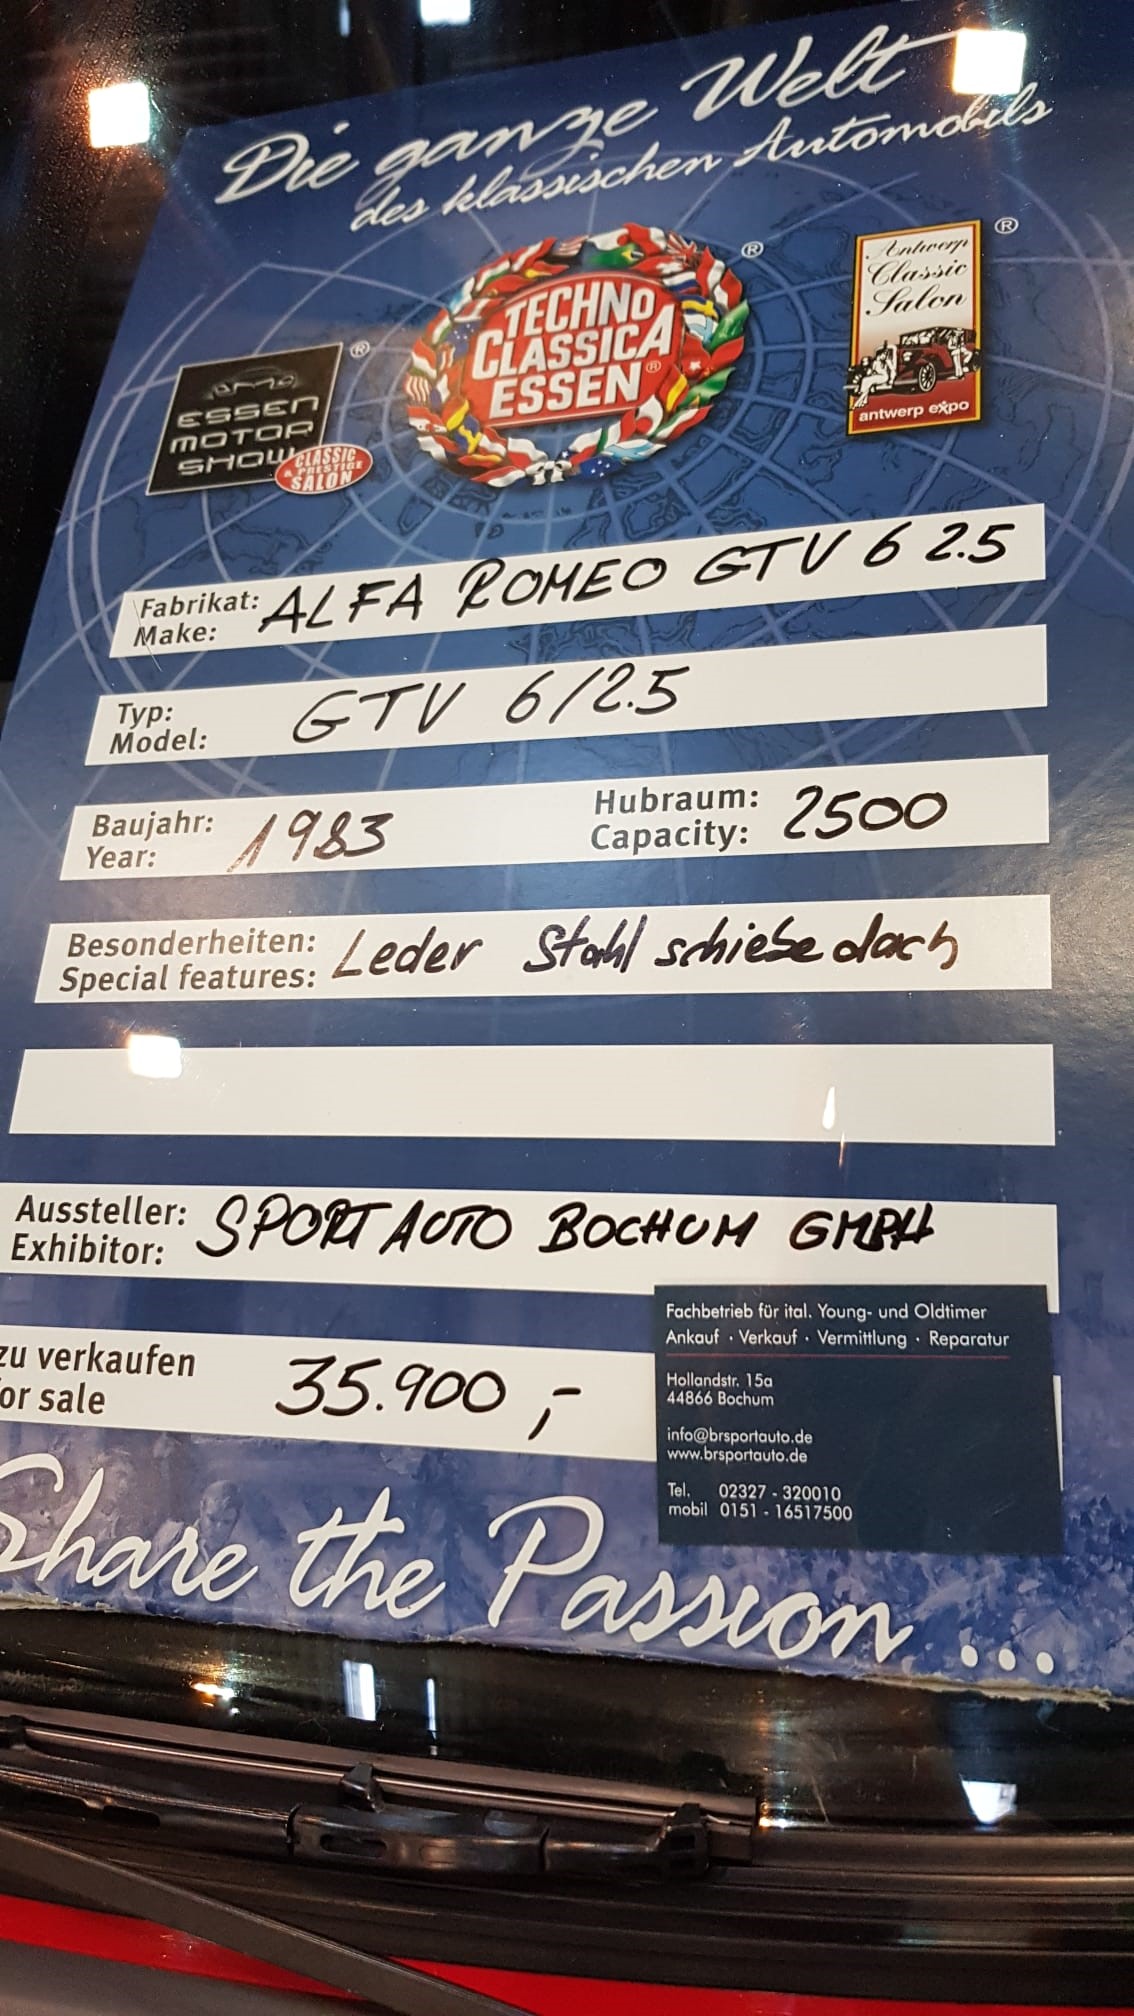 Die ganze Welt
des klassischen Automobils
TECHNO
CLASSICA
ESSEN
®
®
Antwerp
Classic
Salon
antwerp expo
®
ESSEN
MOTOR
SHOW
®
CLASSIC
& PRESTIGE
SALON
Fabrikat: ALFA ROMEO GTV 6 2.5
Make:
Typ: GTV 6/2.5
Model:
Baujahr: 1983 Hubraum: 2500
Year: Capacity:
Besonderheiten: Leder Stahlschiebedach
Special features:
Aussteller: SPORTAUTO BOCHUM GMBH
Exhibitor:
zu verkaufen 35.900,-
or sale
Fachbetrieb für ital. Young- und Oldtimer
Ankauf · Verkauf · Vermittlung · Reparatur
Hollandstr. 15a
44866 Bochum
info@brsportauto.de
www.brsportauto.de
Tel. 02327 - 320010
mobil 0151 - 16517500
Share the Passion ...